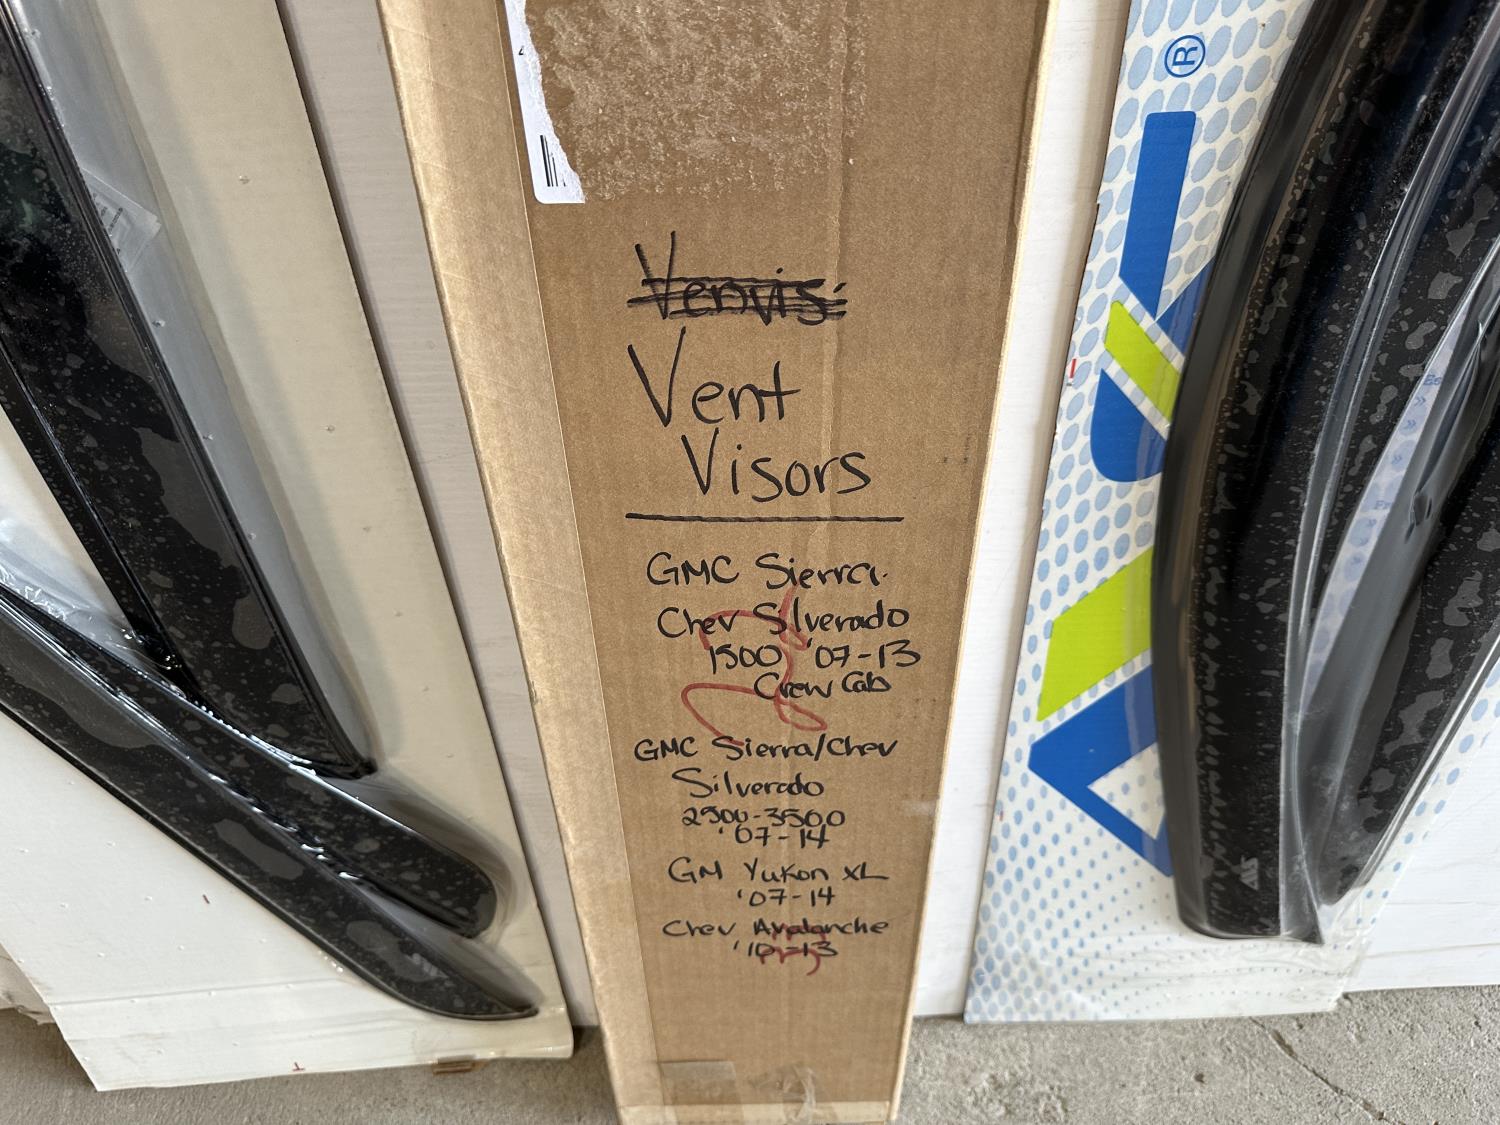 Venvis
Vent
Visors
GMC Sierra
Chev Silverado
1500 '07-13
Crew Cab
GMC Sierra/Chev
Silverado
2500-3500
'07-14
GM Yukon XL
'07-14
Chev Avalanche
'10-13
®